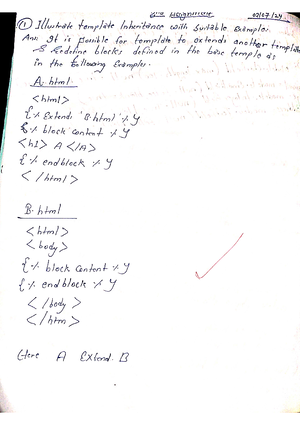 Assignment 02/07/24
① Illustrate template Inheritance with Suitable Example:
Ans It is posible for template to extends another template
& Redefine blocks defined in the base temple as
in the following Example.
A. html
<html>
{% Extends 'B.html' %}
{% block content %}
<h1> A </A>
{% endblock %}
</html>
B. html
<html>
<body>
{% block Content %}
{% endblock %}
</body>
</htm>
Here A Extend. B